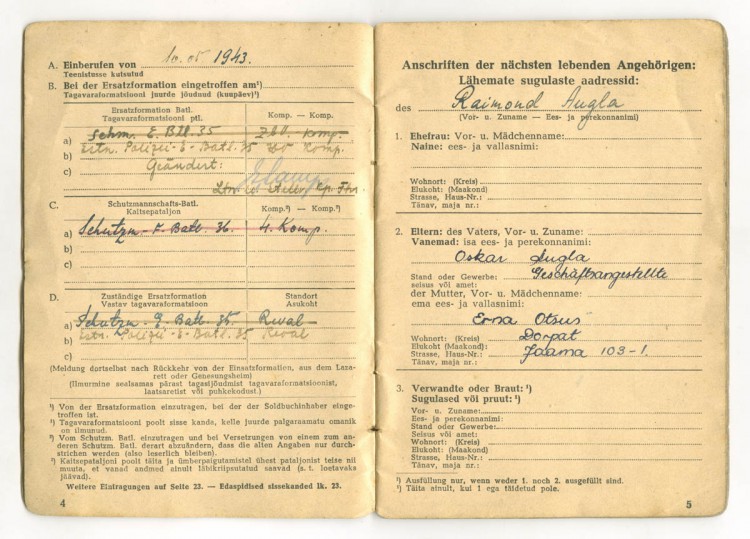 A. Einberufen von 10. 05 1943.
Teenistusse kutsutud
B. Bei der Ersatzformation eingetroffen am¹)
Tagavaraformatsiooni juurde jõudnud (kuupäev)¹)
Ersatzformation Batl. Komp. — Komp.
Tagavaraformatsiooni ptl.
a) Schm. E. Btl. 35 Komp.
b) Estn. Polizei-E-Batl. 35 Komp.
c) Geändert:
Ltn. u. Kp. Fhr.
C. Schutzmannschafts-Batl. Komp.³) — Komp.³)
Kaitsepataljon
a) Schutzm.-F. Batl. 36. 4. Komp.
b)
c)
D. Zuständige Ersatzformation Standort
Vastav tagavaraformatsioon Asukoht
a) Schutzm. E. Batl. 35. Reval
b) Estn. Polizei-E-Batl. 35 Reval
c)
(Meldung dortselbst nach Rückkehr von der Einsatzformation, aus dem Laza-
rett oder Genesungsheim)
(Ilmurmine sealsamas pärast tagasijõudmist tagavaraformatsioonist,
laatsaretist või puhkekodust.)
¹) Von der Ersatzformation einzutragen, bei der der Soldbuchinhaber einge-
troffen ist.
²) Tagavaraformatsiooni poolt sisse kande, kelle juurde palgaraamatu omanik
on ilmunud.
³) Vom Schutzm. Batl. einzutragen und bei Versetzungen von einem zum an-
deren Schutzm. Batl. derart abzuändern, dass die alten Angaben nur durch-
strichen werden (also leserlich bleiben).
⁴) Kaitsepataljoni poolt täita ja ümberpaigutamistel ühest pataljonist teise nii
muuta, et vanad andmed ainult läbikriipsutatud saavad (s. t. loetavaks
jäävad).
Weitere Eintragungen auf Seite 23. — Edaspidised sissekanded lk. 23.
4
Anschriften der nächsten lebenden Angehörigen:
Lähemate sugulaste aadressid:
des Raimond Augla
(Vor- u. Zuname — Ees- ja perekonnanimi)
1. Ehefrau: Vor- u. Mädchenname:
Naine: ees- ja vallasnimi:
Wohnort: (Kreis)
Elukoht: (Maakond)
Strasse, Haus-Nr.:
Tänav, maja nr.:
2. Eltern: des Vaters, Vor- u. Zuname:
Vanemad: isa ees- ja perekonnanimi:
Oskar Augla
Stand oder Gewerbe: Geschäftsangestellte
seisus või amet:
der Mutter, Vor- u. Mädchenname:
ema ees- ja vallasnimi:
Erna Otsus
Wohnort: (Kreis) Dorpat
Elukoht (Maakond):
Strasse, Haus-Nr.: Jaama 103-1.
Tänav, maja nr.:
3. Verwandte oder Braut: ¹)
Sugulased või pruut: ¹)
Vor- u. Zuname:
Ees- ja perekonnanimi:
Stand oder Gewerbe:
Seisus või amet:
Wohnort: (Kreis)
Elukoht: (Maakond)
Strasse, Haus-Nr.:
Tänav, maja nr.:
¹) Ausfüllung nur, wenn weder 1. noch 2. ausgefüllt sind.
¹) Täita ainult, kui 1 ega 2 täidetud pole.
5